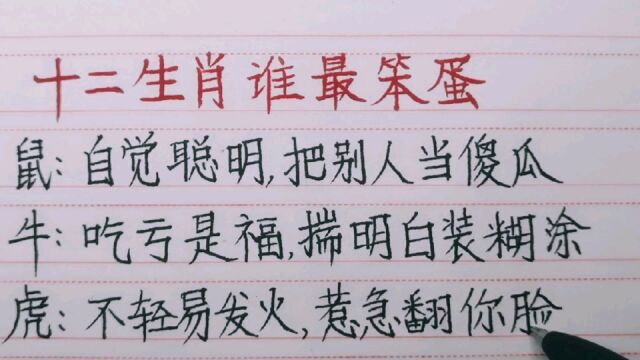 十二生肖谁最笨蛋
鼠:自觉聪明,把别人当傻瓜
牛:吃亏是福,揣明白装糊涂
虎:不轻易发火,惹急翻你脸